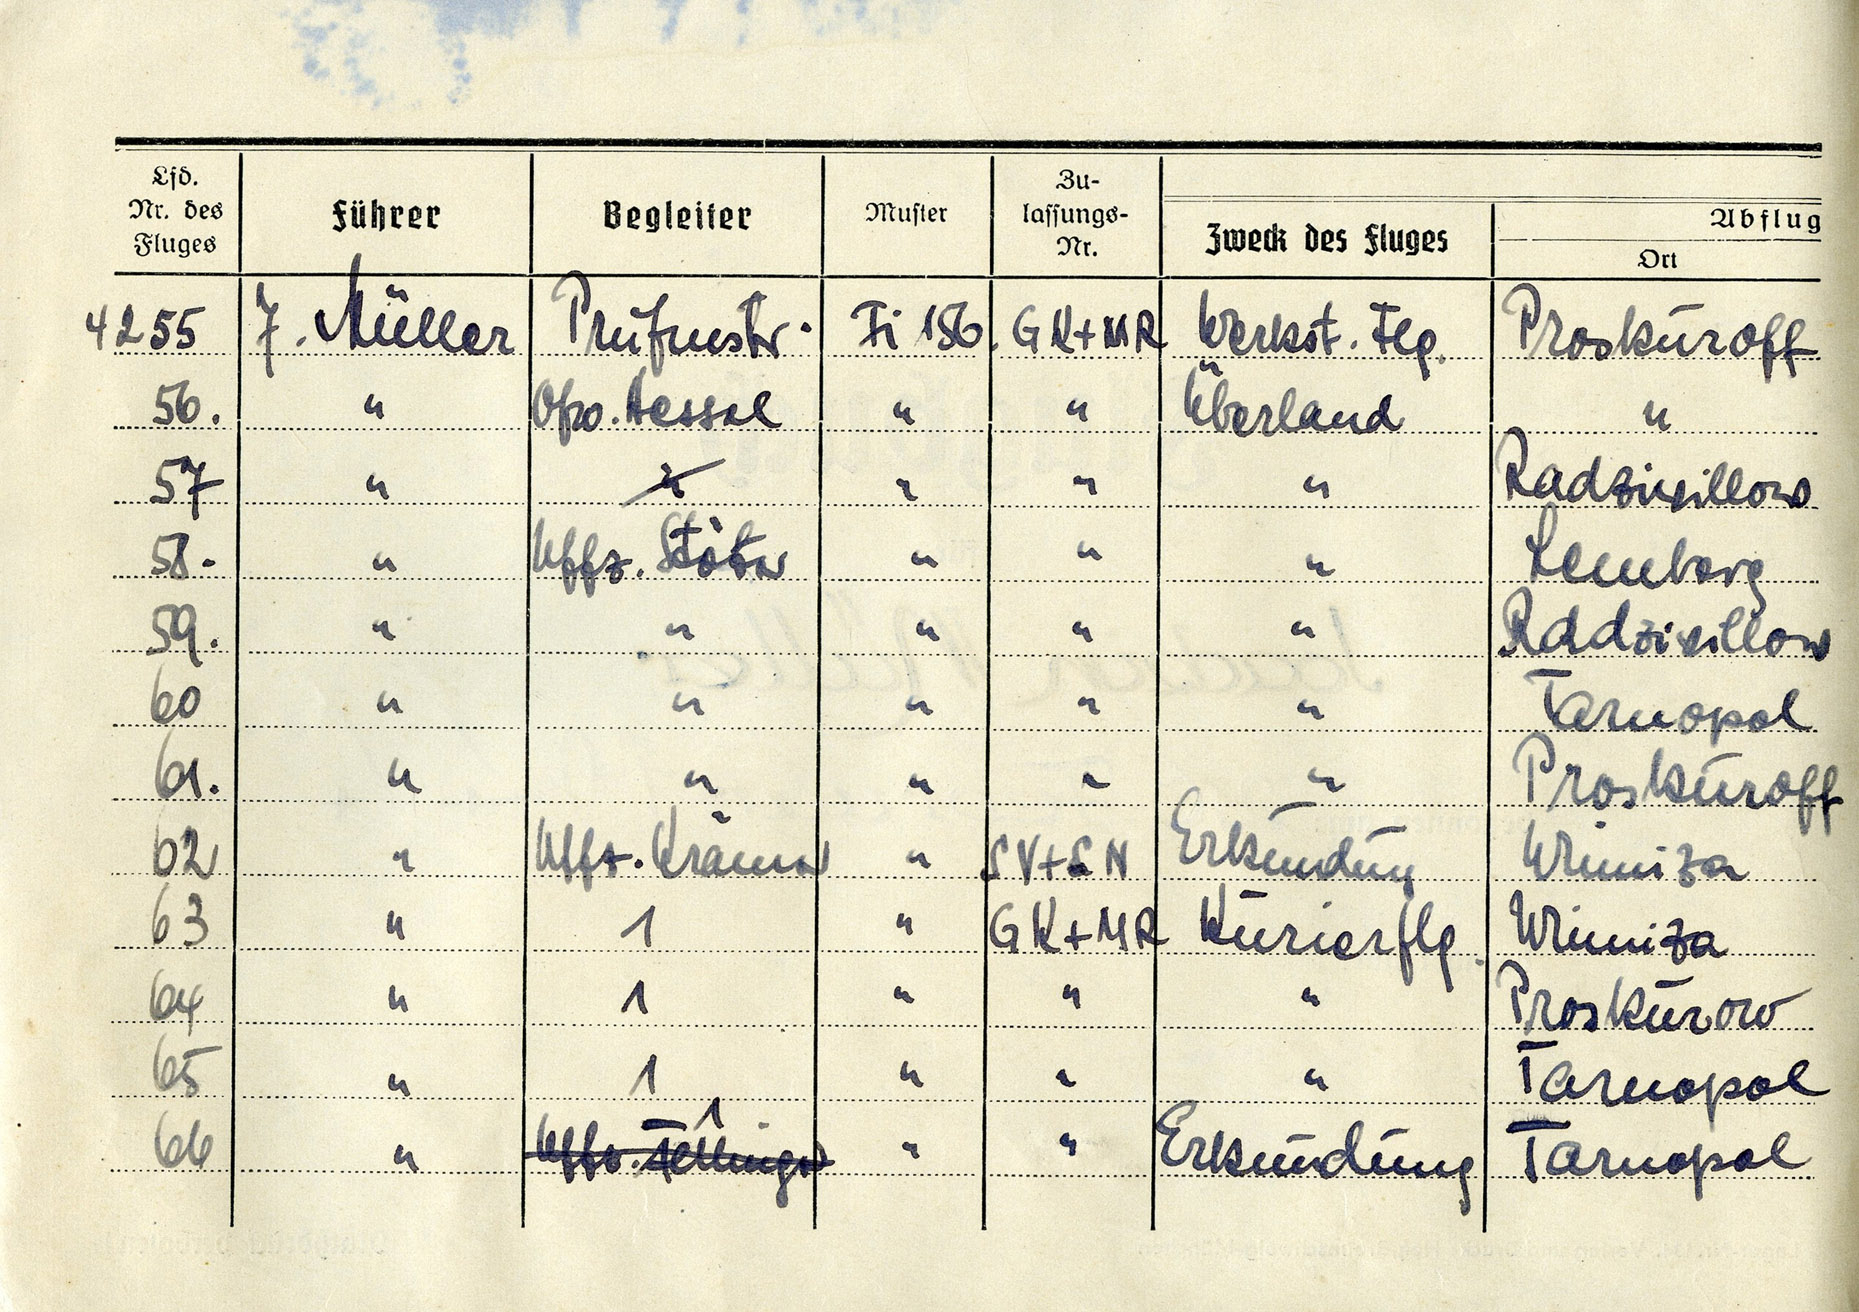 Lfd. Nr. des Fluges Führer Begleiter Muster Zulassungs-Nr. Zweck des Fluges Abflug Ort
4255 J. Müller Fi 156. GK+MR Werkst. Flg. Proskuroff
56. " Ofw. Hessel " " Überland "
57 " " " " " Radziwillow
58. " Uffz. " " " Lemberg
59. " " " " " Radziwillow
60 " " " " " Tarnopol
61. " " " " " Proskuroff
62 " Uffz. Krämer " SV+SN Erkundung Winniza
63 " 1 " GK+MR Kurierflg. Winniza
64 " 1 " " " Proskurow
65 " 1 " " " Tarnopol
66 " 1 " " Erkundung Tarnopol